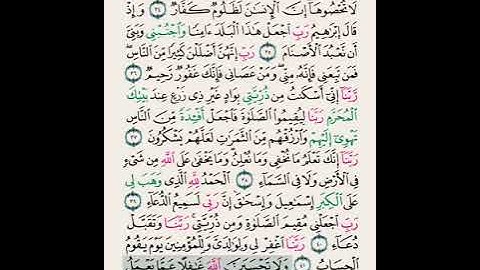 لَا تُحْصُوهَآ إِنَّ ٱلْإِنسَٰنَ لَظَلُومٌ كَفَّارٌ ٣٤ وَإِذْ
قَالَ إِبْرَٰهِيمُ رَبِّ ٱجْعَلْ هَٰذَا ٱلْبَلَدَ ءَامِنًا وَٱجْنُبْنِى وَبَنِىَّ
أَن نَّعْبُدَ ٱلْأَصْنَامَ ٣٥ رَبِّ إِنَّهُنَّ أَضْلَلْنَ كَثِيرًا مِّنَ ٱلنَّاسِ
فَمَن تَبِعَنِى فَإِنَّهُۥ مِنِّى وَمَنْ عَصَانِى فَإِنَّكَ غَفُورٌ رَّحِيمٌ ٣٦
رَّبَّنَآ إِنِّىٓ أَسْكَنتُ مِن ذُرِّيَّتِى بِوَادٍ غَيْرِ ذِى زَرْعٍ عِندَ بَيْتِكَ
ٱلْمُحَرَّمِ رَبَّنَا لِيُقِيمُوا۟ ٱلصَّلَوٰةَ فَٱجْعَلْ أَفْـِٔدَةً مِّنَ ٱلنَّاسِ
تَهْوِىٓ إِلَيْهِمْ وَٱرْزُقْهُم مِّنَ ٱلثَّمَرَٰتِ لَعَلَّهُمْ يَشْكُرُونَ ٣٧
رَبَّنَآ إِنَّكَ تَعْلَمُ مَا نُخْفِى وَمَا نُعْلِنُ وَمَا يَخْفَىٰ عَلَى ٱللَّهِ مِن شَىْءٍ
فِى ٱلْأَرْضِ وَلَا فِى ٱلسَّمَآءِ ٣٨ ٱلْحَمْدُ لِلَّهِ ٱلَّذِى وَهَبَ لِى
عَلَى ٱلْكِبَرِ إِسْمَٰعِيلَ وَإِسْحَٰقَ إِنَّ رَبِّى لَسَمِيعُ ٱلدُّعَآءِ ٣٩
رَبِّ ٱجْعَلْنِى مُقِيمَ ٱلصَّلَوٰةِ وَمِن ذُرِّيَّتِى رَبَّنَا وَتَقَبَّلْ
دُعَآءِ ٤٠ رَبَّنَا ٱغْفِرْ لِى وَلِوَٰلِدَىَّ وَلِلْمُؤْمِنِينَ يَوْمَ يَقُومُ
ٱلْحِسَابُ ٤١ وَلَا تَحْسَبَنَّ ٱللَّهَ غَٰفِلًا عَمَّا يَعْمَلُ